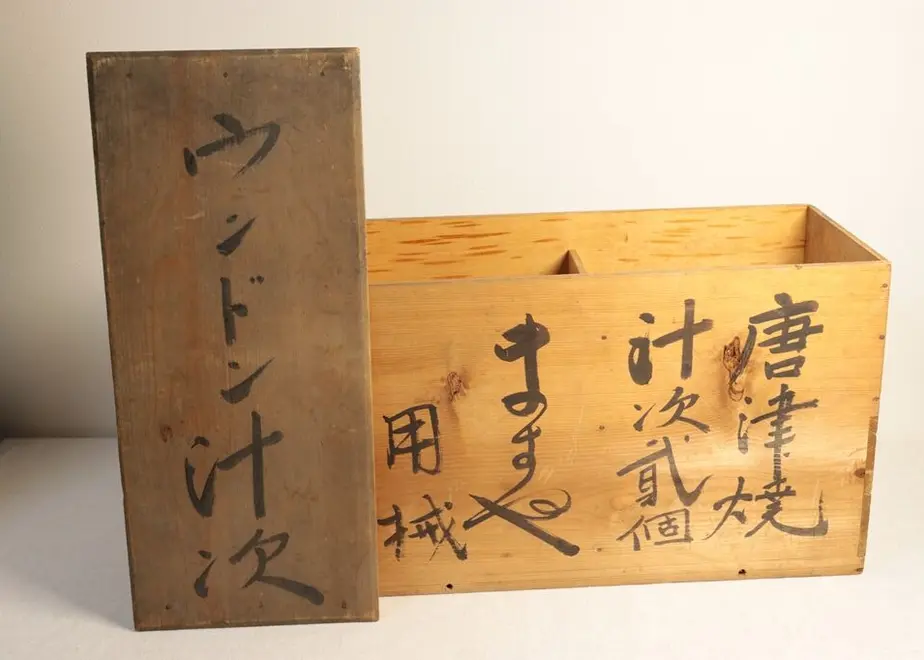 ウンドン汁次
唐津焼
汁次貳個
ますや
用械